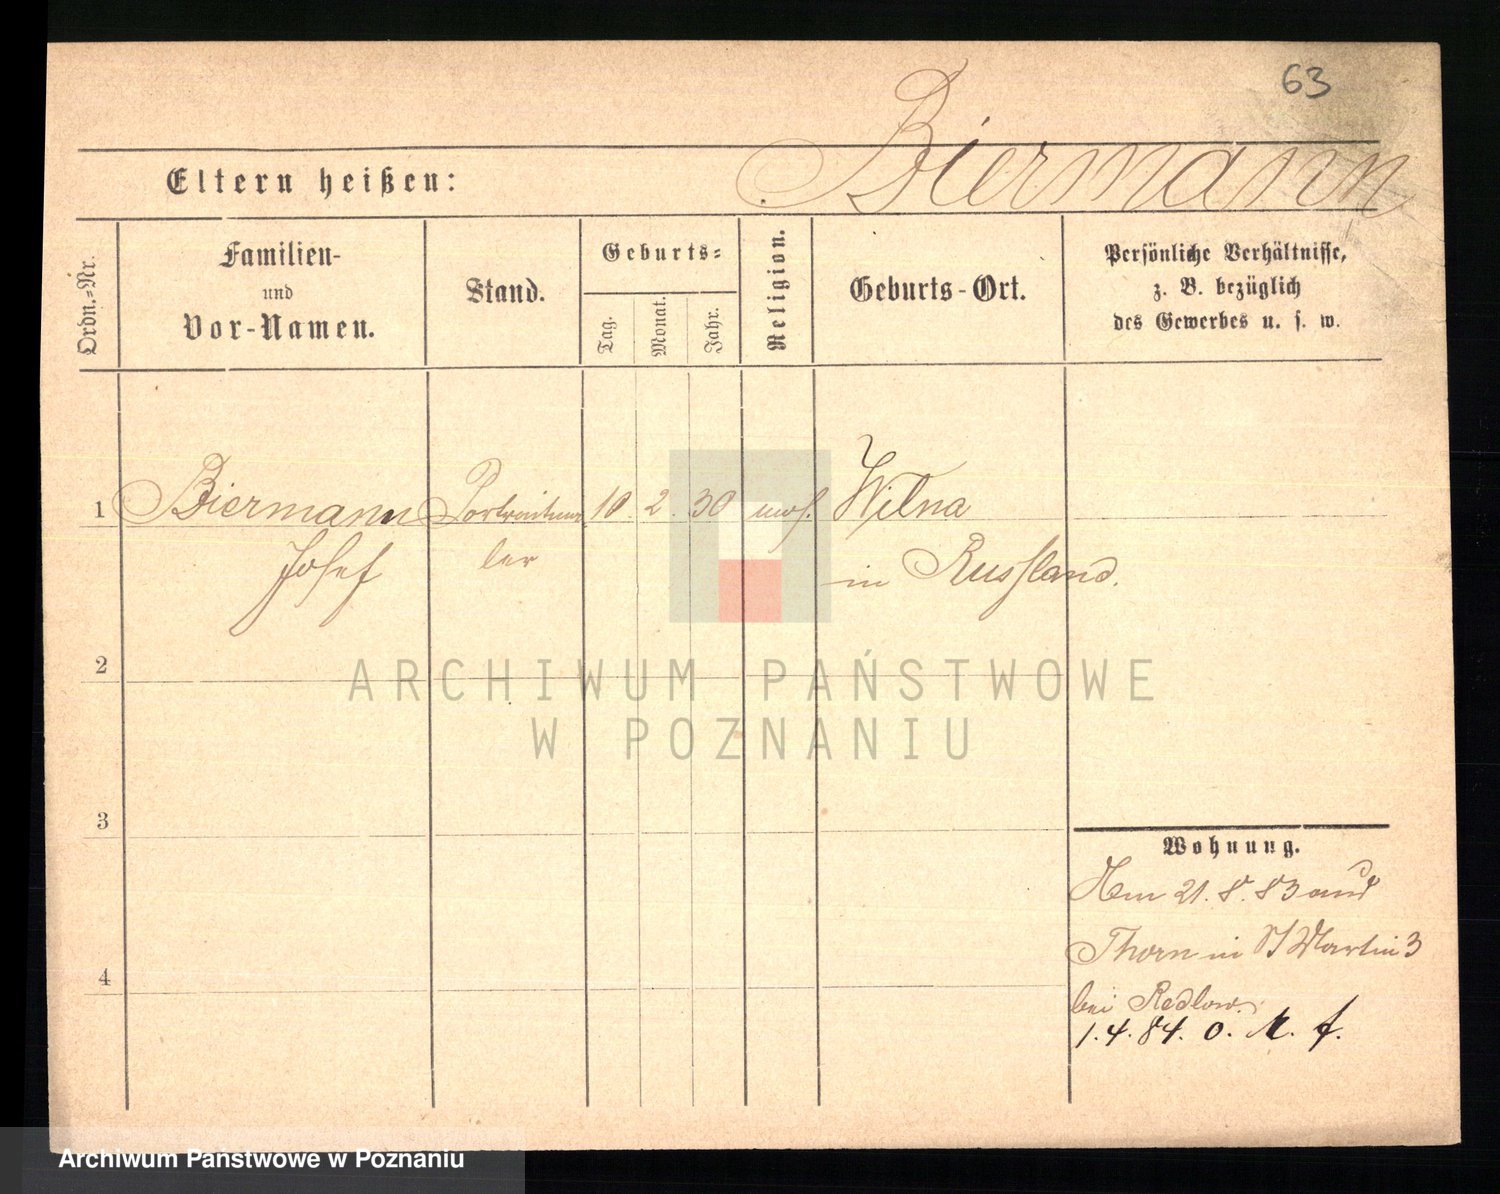 63
Biermann
Eltern heißen:
Ordn.-Nr.
Familien-
und
Vor-Namen.
Stand.
Geburts-
Tag.
Monat.
Jahr.
Religion.
Geburts-Ort.
Persönliche Verhältnisse,
z. B. bezüglich
des Gewerbes u. s. w.
1 Biermann 10. 2. 30 mos. Wilna
Josef ler in Russland.
2
ARCHIWUM PAŃSTWOWE
W POZNANIU
3
4
Wohnung.
21. 8. 83 aus
Thorn in St Martin 3
bei Redlow.
1. 4. 84. o. A. f.
Archiwum Państwowe w Poznaniu